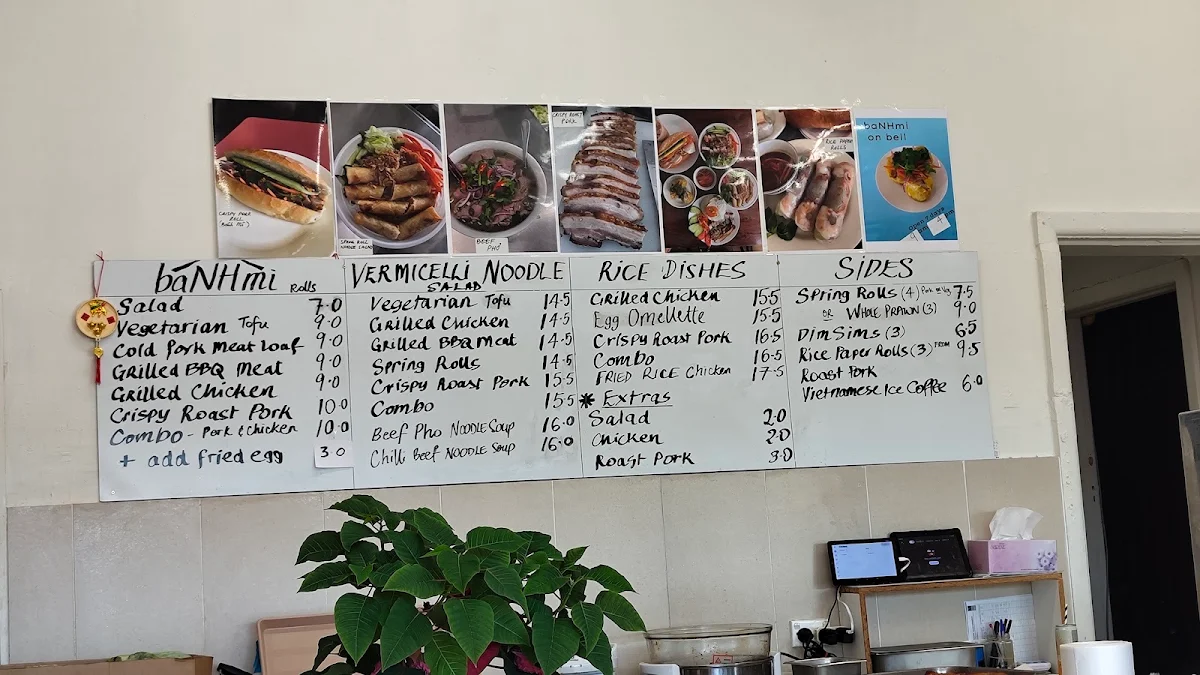 CRISPY PORK
ROLL
SPRING ROLL
NOODLE SALAD
BEEF
PHO
CRISPY ROAST
PORK
RICE PAPER
ROLLS
baNHmi
on bell
open 7 days
báNHmì Rolls
Salad 7.0
Vegetarian Tofu 9.0
Cold Pork Meat Loaf 9.0
GRilled BBQ Meat 9.0
Grilled Chicken 9.0
Crispy Roast Pork 10.0
Combo - Pork & Chicken 10.0
+ add fried egg 3.0
VERMICELLI NOODLE
SALAD
Vegetarian Tofu 14.5
Grilled Chicken 14.5
Grilled BBQ Meat 14.5
Spring Rolls 14.5
Crispy Roast Pork 15.5
Combo 15.5
Beef Pho Noodle Soup 16.0
Chilli Beef Noodle Soup 16.0
RICE DISHES
GRilled Chicken 15.5
Egg Omellette 15.5
Crispy Roast Pork 16.5
Combo 16.5
FRIED RICE Chicken 17.5
* Extras
Salad 2.0
Chicken 2.0
Roast Pork 3.0
SIDES
Spring Rolls (4) Pork or Veg 7.5
OR WHOLE PRAWN (3) 9.0
Dim Sims (3) 6.5
Rice Paper Rolls (3) FROM 9.5
Roast Pork
Vietnamese Ice Coffee 6.0